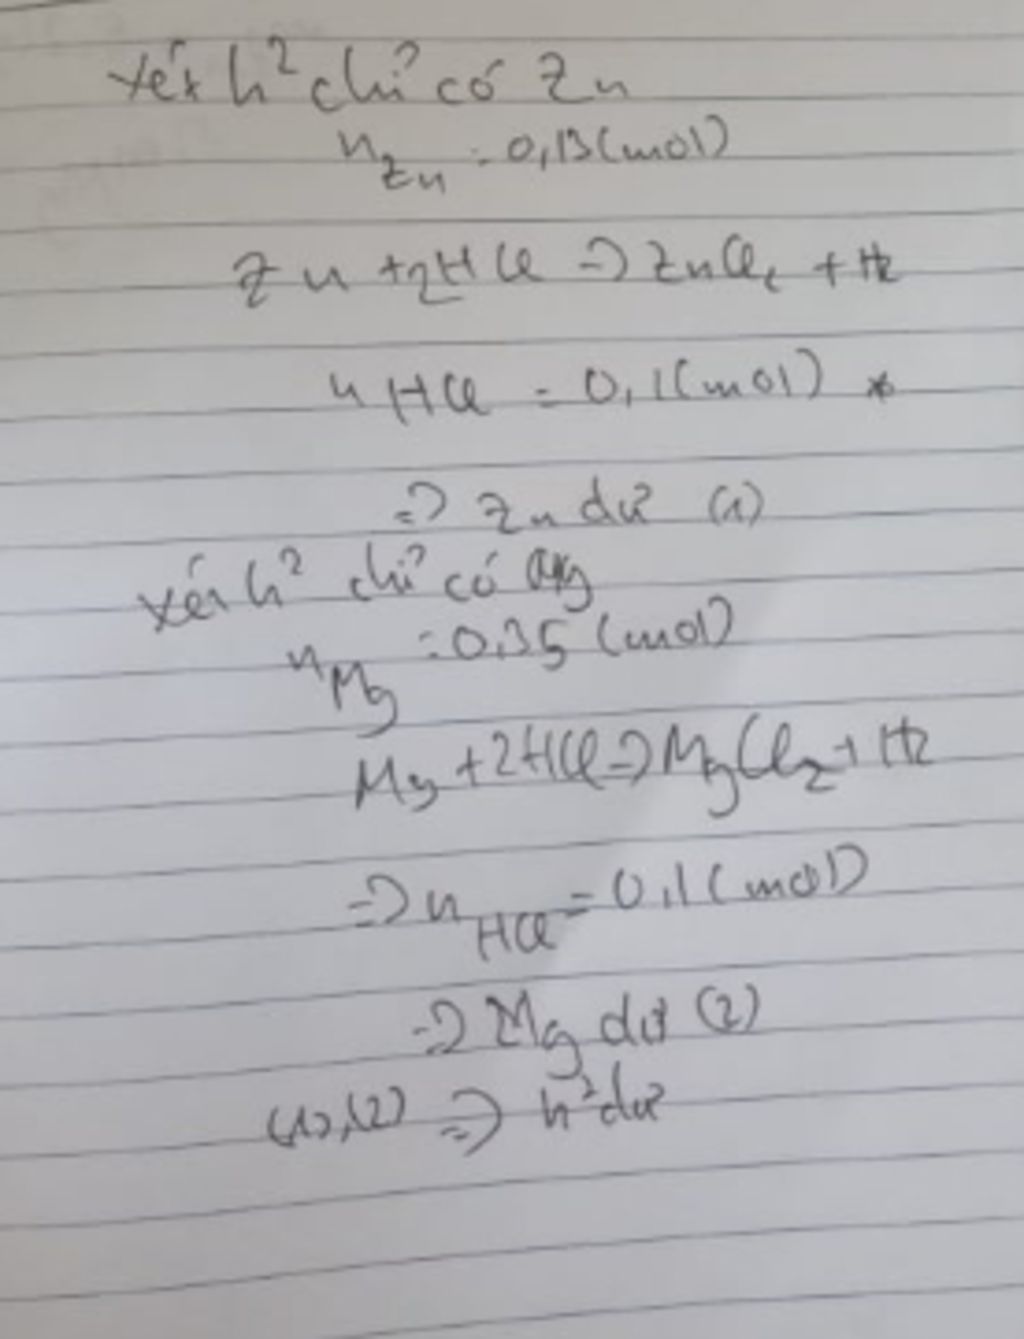 Xét h² chỉ có Zn
nZn = 0,13(mol)
Zn + 2HCl => ZnCl₂ + H₂
nHCl = 0,1(mol) *
=> Zn dư (1)
Xét h² chỉ có Mg
nMg = 0,35 (mol)
Mg + 2HCl => MgCl₂ + H₂
=> nHCl = 0,1(mol)
=> Mg dư (2)
(1),(2) => h² dư